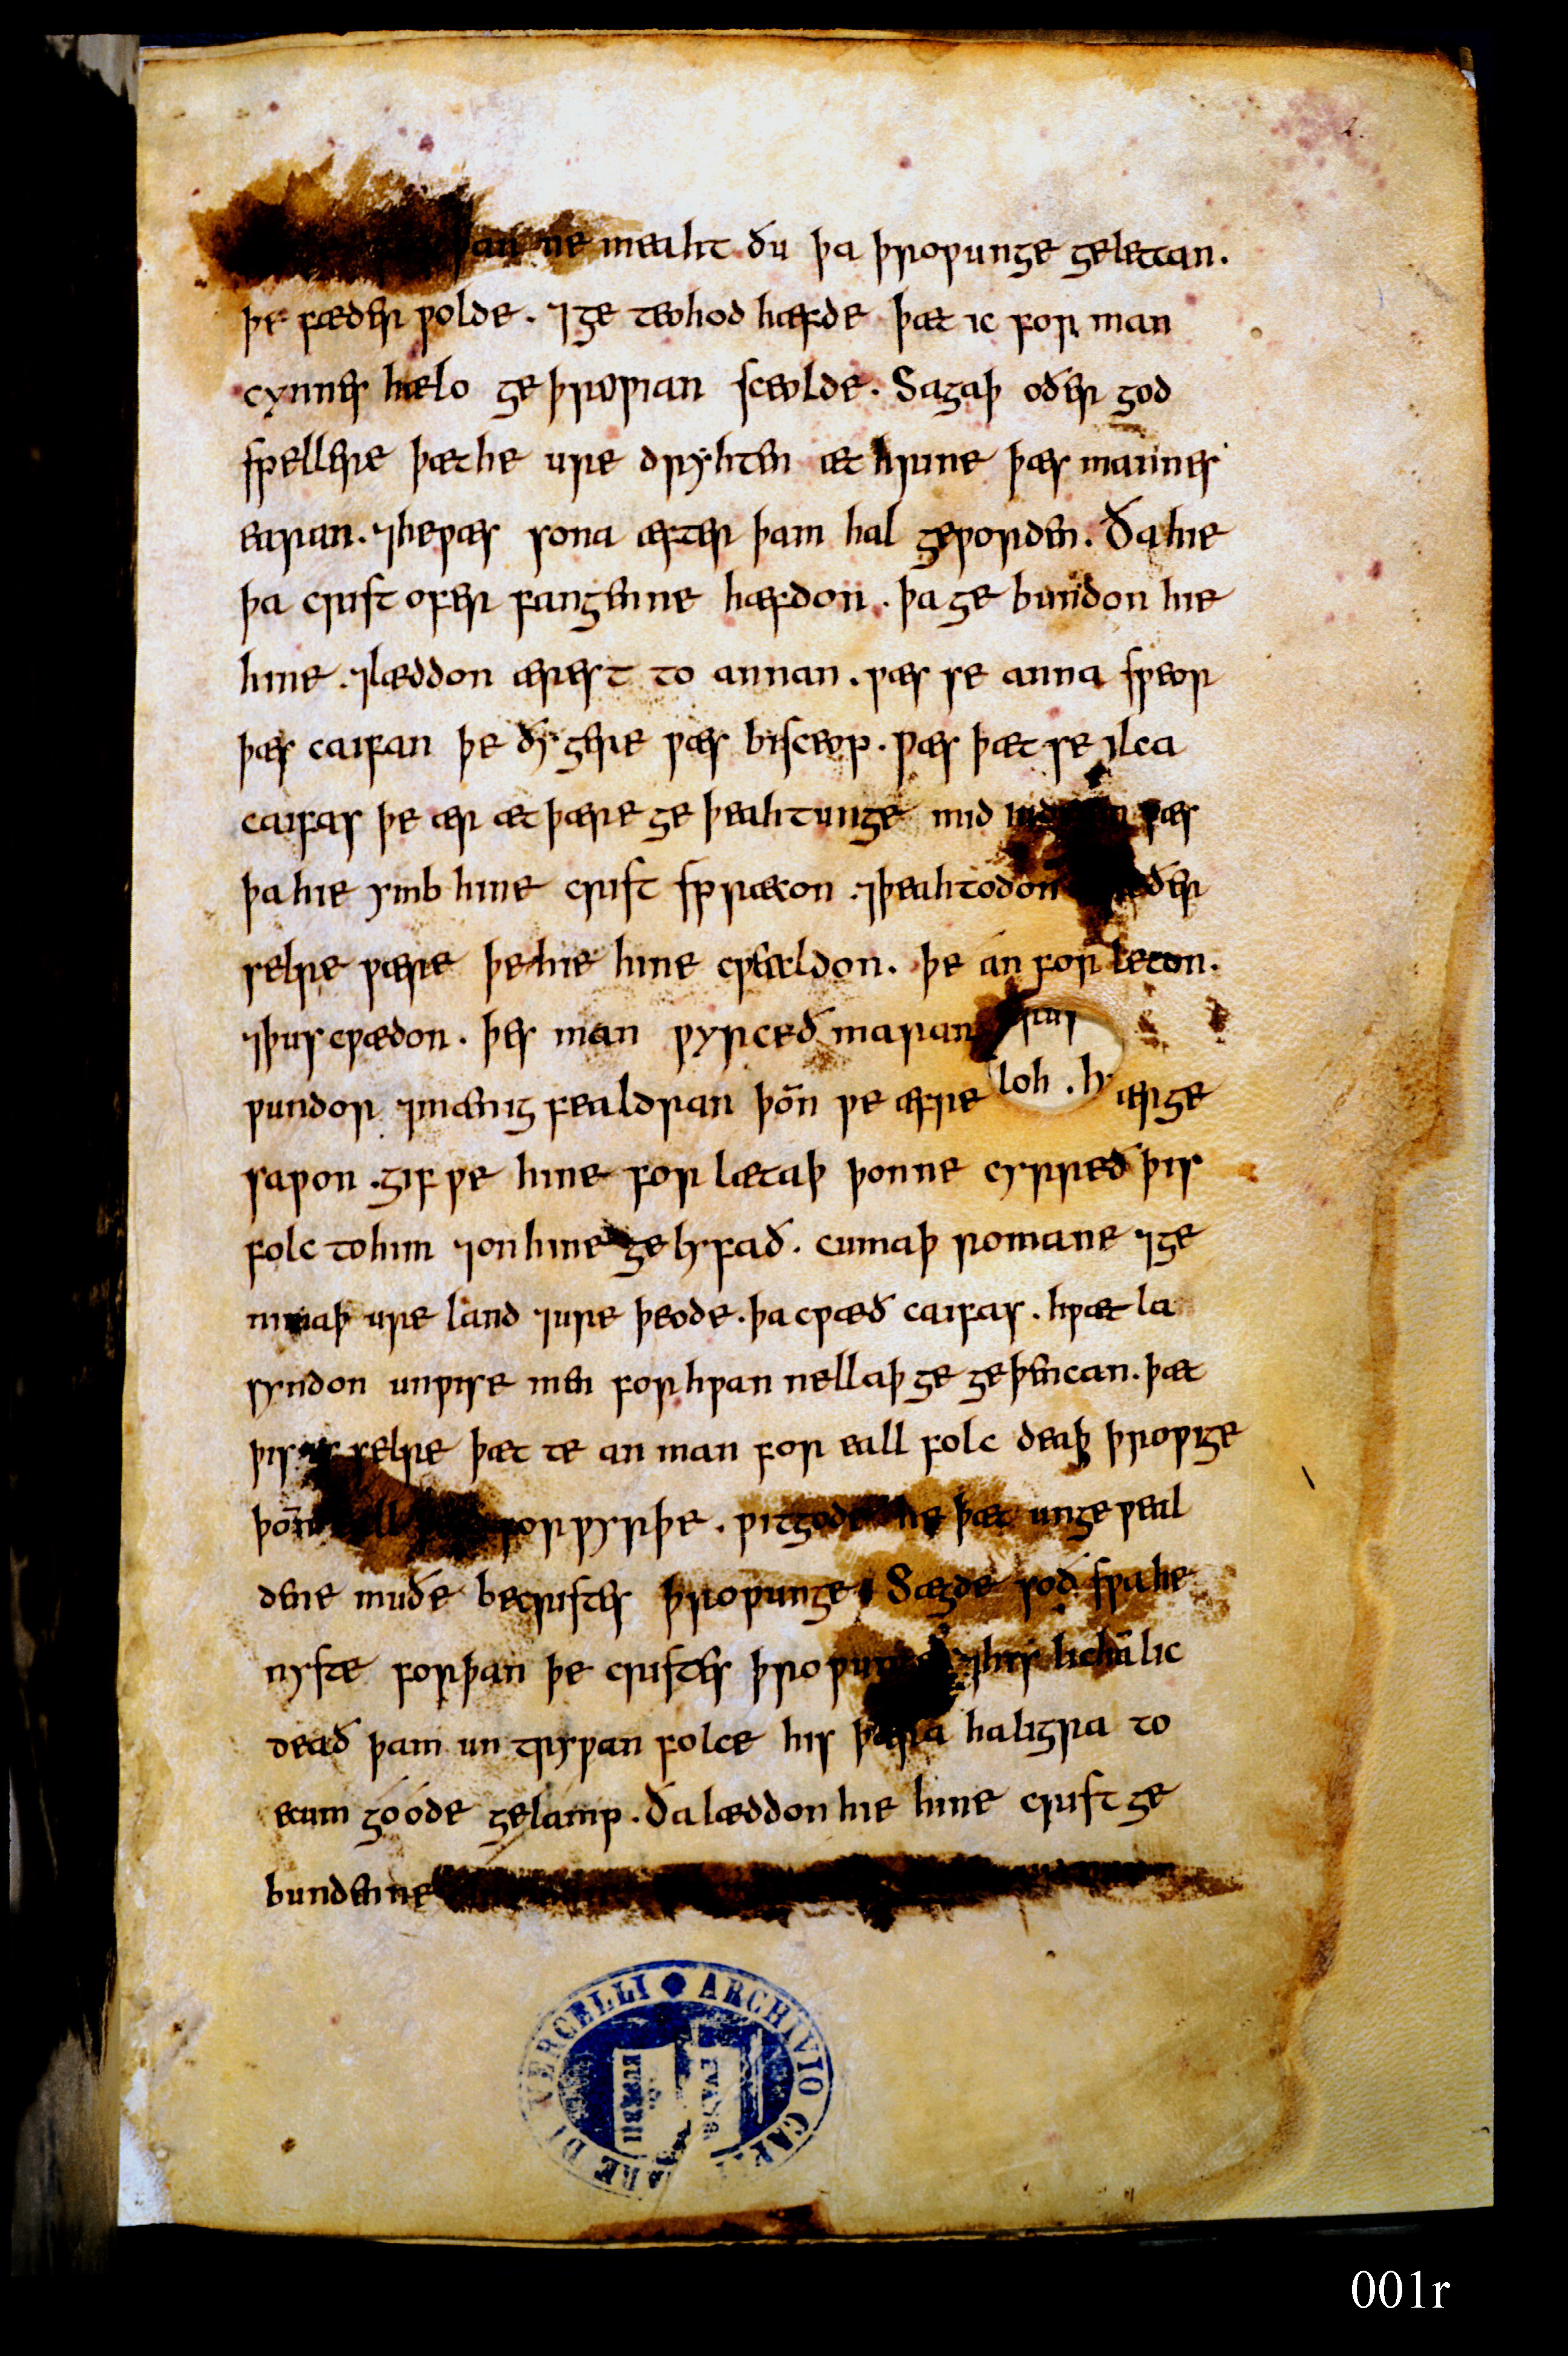 ne meaht ðu þa þroƿunge gelettan.
þe fæder ƿolde. ⁊ ge teohod hæfde þæt ic for man
cynnes hælo ge þroƿian sceolde. Sagaþ oðer god
spellere þæt he ure dryhten æt hrine þæs mannes
earan. ⁊ he ƿæs sona æfter þam hal geƿorden. Ða hie
þa crist ofer fangenne hæfdon. þa ge bundon hie
hine. ⁊ læddon ærest to annan. ƿæs se anna sƿeor
þæs caifan þe ðy gere ƿæs bisceop. ƿæs þæt se ylca
caifas þe ær æt þære ge þeahtunge mid ƿæs
þa hie ymb hine crist spræcon. ⁊ þeahtodon
selre ƿære þe hie hine cƿealdon. þe án for leton.
⁊ þus cƿædon. þes man ƿyrceð maran
ƿundor ⁊ mænig fealdran þon̄ ƿe æfre ærge
saƿon. gif ƿe hine for lætaþ þonne cyrreð þis
folc to him ⁊ on hine ge lyfað. cumaþ romane ⁊ ge
nimaþ ure land ⁊ ure þeode. þa cƿæð caifas. hƿæt la
syndon unƿise men for hƿan nellaþ ge ge þencan. þæt
þis is selre þæt te an man for eall folc deaþ þroƿige
þon̄ forƿyrþe. ƿitgode he þæt unge ƿeal
dene muðe be cristes þroƿunge. Sægde soð sƿa he
nyste for þan þe cristes ⁊ his licham̄ lic
deað þam un tryƿan folce his þæra haligra to
ecum góóde gelamp. Ða læddon hie hine crist ge
bundenne
ARCHIVIO CAPITOLARE DI VERCELLI
001r